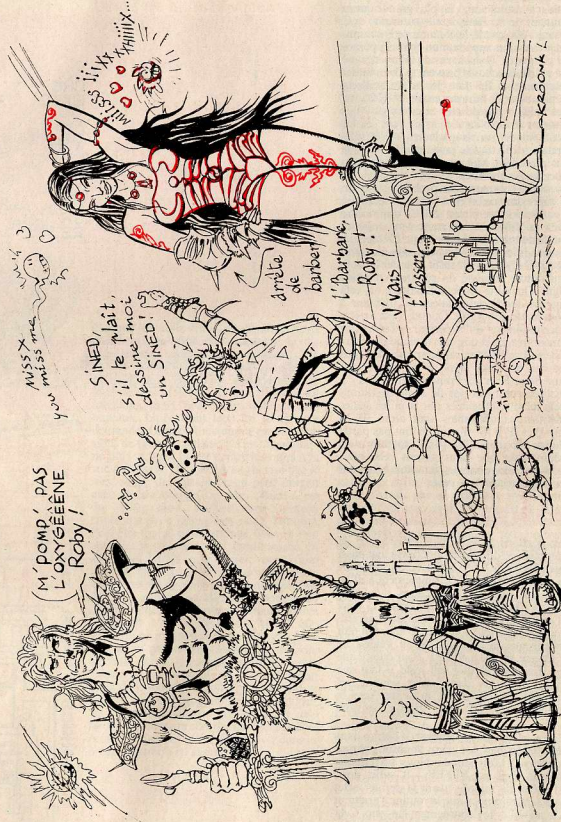 (M'POMP' PAS
L'OXYGÉÈÈNE
Roby !
MISS X
you miss me
SINED,
s'il te plaît,
dessine-moi
un SINED!
arrête
de
barber
l'Barbare,
Roby !
J'vais
t'lasser
MiiiSSS iiXX
XXHiiiX...
TILT
KROONK!